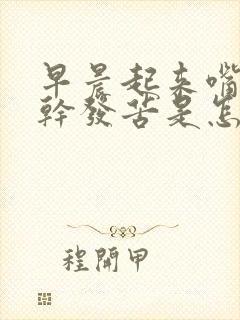 早晨起来嘴
幹發苦是怎
程開甲